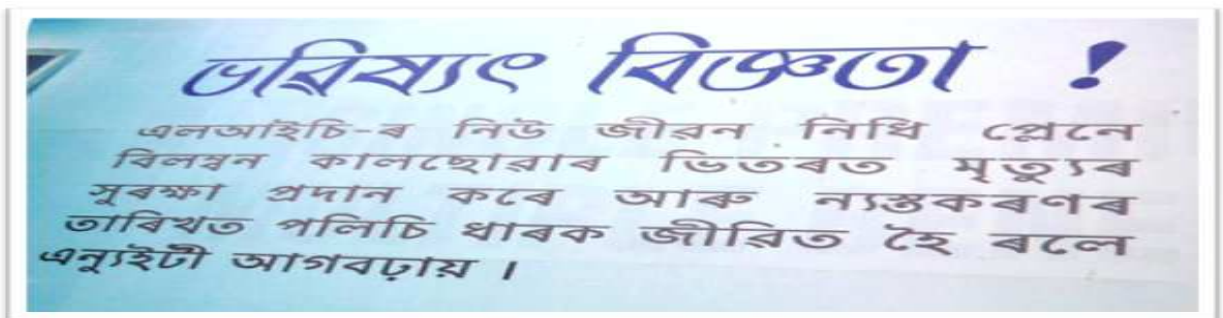 ভৱিষ্যৎ বিজ্ঞতা !
এলআইচি-ৰ নিউ জীৱন নিধি প্লেনে
বিলম্বন কালছোৱাৰ ভিতৰত মৃত্যুৰ
সুৰক্ষা প্ৰদান কৰে আৰু ন্যস্তকৰণৰ
তাৰিখত পলিচি ধাৰক জীৱিত হৈ ৰলে
এন্যুইটী আগবঢ়ায় ।